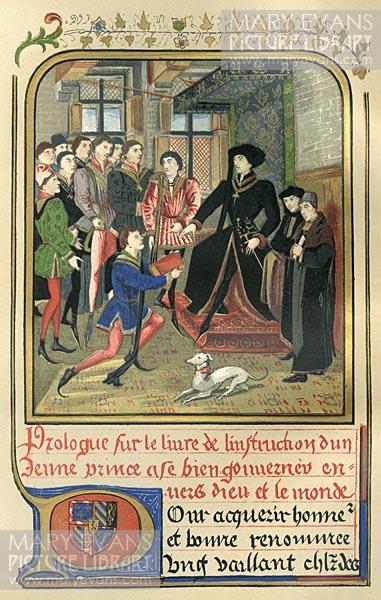 MARY EVANS
PICTURE LIBRARY
www.maryevans.com
Prologue sur le liure de linstruction dun
Jeune prince a se bien gouuerner en-
uers dieu et le monde
Our acquerir honneʳ
et bonne renommee
Vng vaillant chlr̃
MARY EVANS
PICTURE LIBRARY
www.maryevans.com